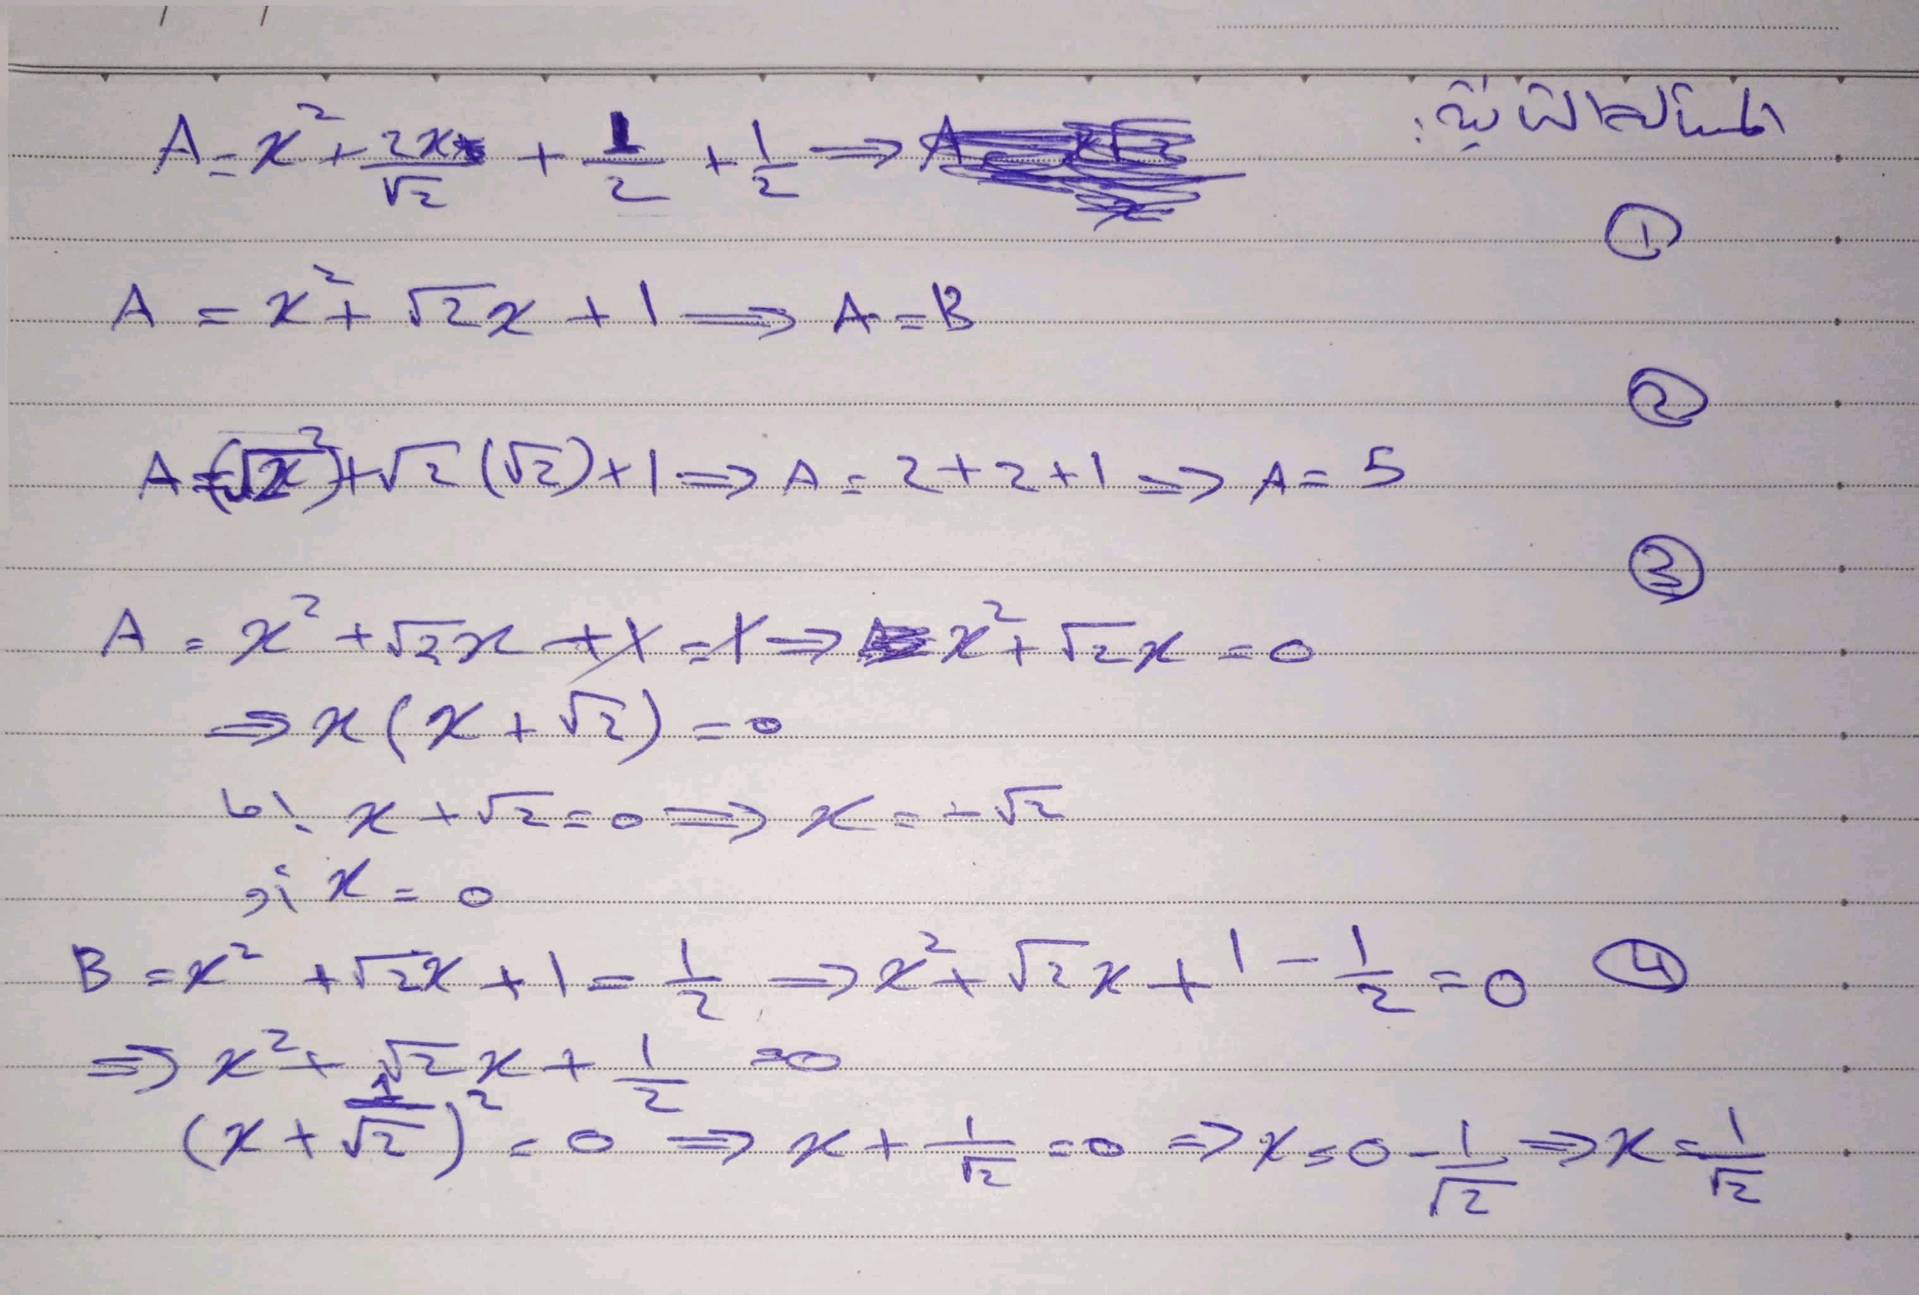 A = x² + 2x/√2 + 1/2 + 1/2 ⇒
①
A = x² + √2x + 1 ⇒ A = B
②
A = (√2)² + √2(√2) + 1 ⇒ A = 2+2+1 ⇒ A = 5
③
A = x² + √2x + 1 = 1 ⇒ x² + √2x = 0
⇒ x(x + √2) = 0
إما x + √2 = 0 ⇒ x = -√2
أو x = 0
B = x² + √2x + 1 = 1/2 ⇒ x² + √2x + 1 - 1/2 = 0 ④
⇒ x² + √2x + 1/2 = 0
(x + 1/√2)² = 0 ⇒ x + 1/√2 = 0 ⇒ x = 0 - 1/√2 ⇒ x = -1/√2